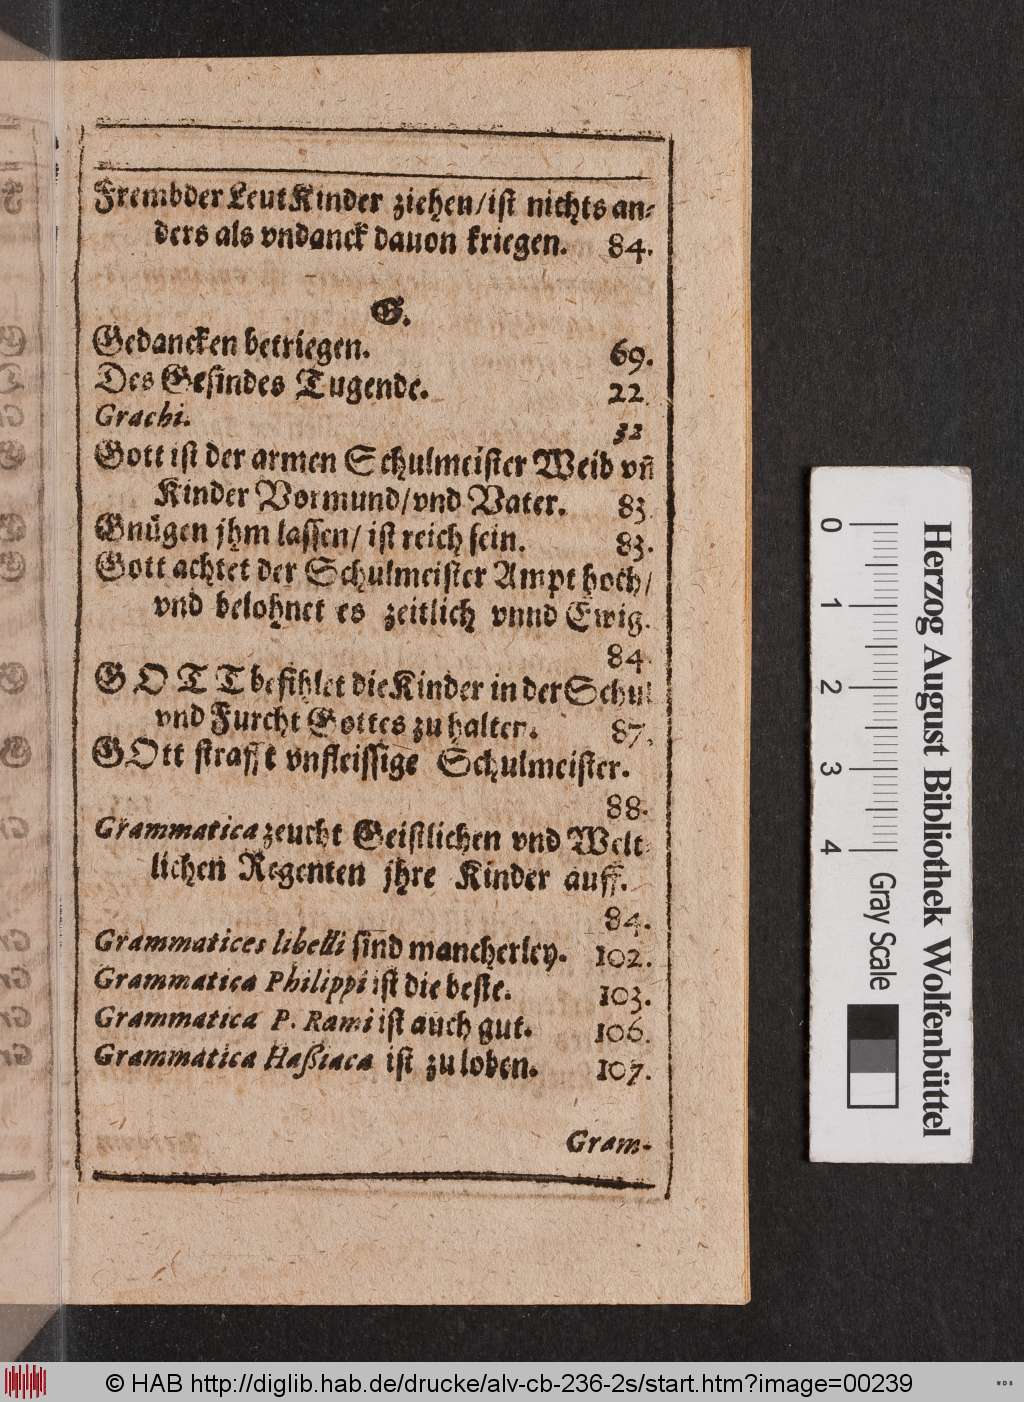 Frembder Leut Kinder ziehen/ist nichts an-
ders als vndanck dauon kriegen. 84.
G.
Gedancken betriegen. 69.
Des Gesindes Tugende. 22
Grachi. 32
Gott ist der armen Schulmeister Weib vñ
Kinder Vormund/vnd Vater. 83
Gnügen jhm lassen/ ist reich sein. 83.
Gott achtet der Schulmeister Ampt hoch/
vnd belohnet es zeitlich vnnd Ewig.
84.
GOTT befihlet die Kinder in der Schul
vnd Furcht Gottes zu halten. 87.
GOtt strafft vnfleissige Schulmeister.
88.
Grammatica zeucht Geistlichen vnd Welt-
lichen Regenten jhre Kinder auff.
84.
Grammatices libelli sind mancherley. 102.
Grammatica Philippi ist die beste. 103.
Grammatica P. Rami ist auch gut. 106.
Grammatica Haßiaca ist zu loben. 107.
Gram-
Herzog August Bibliothek Wolfenbüttel
0 1 2 3 4
Gray Scale
© HAB http://diglib.hab.de/drucke/alv-cb-236-2s/start.htm?image=00239